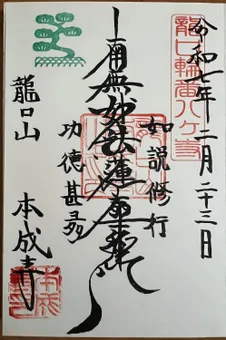 龍口輪番八ケ寺
令和七年二月二十三日
如説修行
南無妙法蓮華経
功徳甚多
龍口山
本成寺